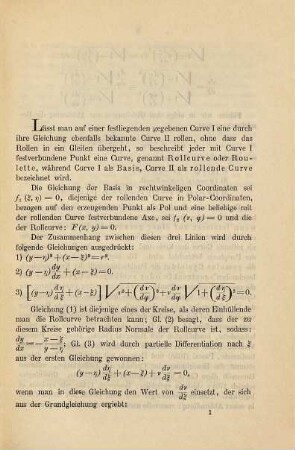 Lässt man auf einer festliegenden gegebenen Curve I eine durch
ihre Gleichung ebenfalls bekannte Curve II rollen, ohne dass das
Rollen in ein Gleiten übergeht, so beschreibt jeder mit Curve I
festverbundene Punkt eine Curve, genannt Rollcurve oder Rou-
lette, während Curve I als Basis, Curve II als rollende Curve
bezeichnet wird.
Die Gleichung der Basis in rechtwinkeligen Coordinaten sei
f₁ (ξ, η) = 0, diejenige der rollenden Curve in Polar-Coordinaten,
bezogen auf den erzeugenden Punkt als Pol und eine beliebige mit
der rollenden Curve festverbundene Axe, sei f₂ (v, φ) = 0 und die
der Rollcurve: F(x, y) = 0.
Der Zusammenhang zwischen diesen drei Linien wird durch
folgende Gleichungen ausgedrückt:
1) (y−η)²+(x−ξ)²=v².
2) (y−η) dy/dx +(x−ξ)=0.
3) [(y−η) dη/dξ +(x−ξ)] √v²+(dv/dφ)²+v dv/dφ √1+(dη/dξ)²=0.
Gleichung (1) ist diejenige eines der Kreise, als deren Einhüllende
man die Rollcurve betrachten kann; Gl. (2) besagt, dass der zu
diesem Kreise gehörige Radius Normale der Rollcurve ist, sodass:
dy/dx=−x−ξ/y−η; Gl. (3) wird durch partielle Differentiation nach ξ
aus der ersten Gleichung gewonnen:
(y−η) dη/dξ +(x−ξ)+v dv/dξ =0,
wenn man in diese Gleichung den Wert von dv/dξ einsetzt, der sich
aus der Grundgleichung ergiebt:
1